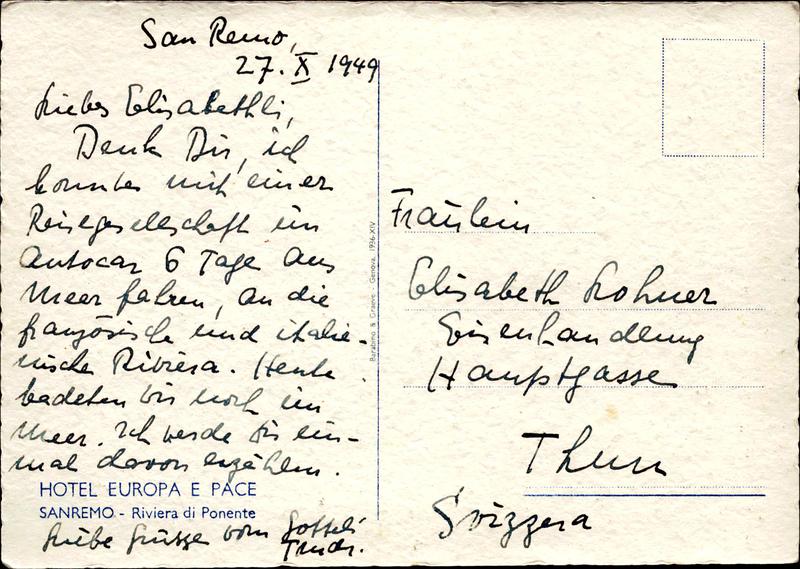 San Remo,
27. X 1949
Liebes Elisabethli,
Denk Dir, ich
konnte mit einer
Reisegesellschaft im
Autocar 6 Tage ans
Meer fahren, an die
französische und italie-
nische Riviera. Heute
badeten wir noch im
Meer. Ich werde Dir ein-
mal davon erzählen.
HOTEL EUROPA E PACE
SANREMO - Riviera di Ponente
Liebe Grüsse vom Gotteli
Trudi.
Barabino & Graeve - Genova. 1936-XIV
Fräulein
Elisabeth Lohner
Eisenhandlung
Hauptgasse
Thun
Svizzera